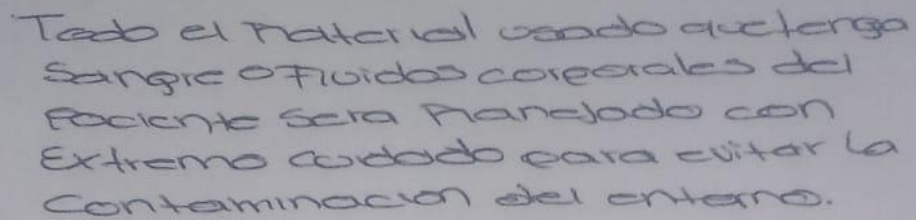 Todo el material usado que tenga
Sangre o Fluidos corporales del
Paciente sera Manejado con
Extremo cuidado para evitar la
Contaminacion del entorno.